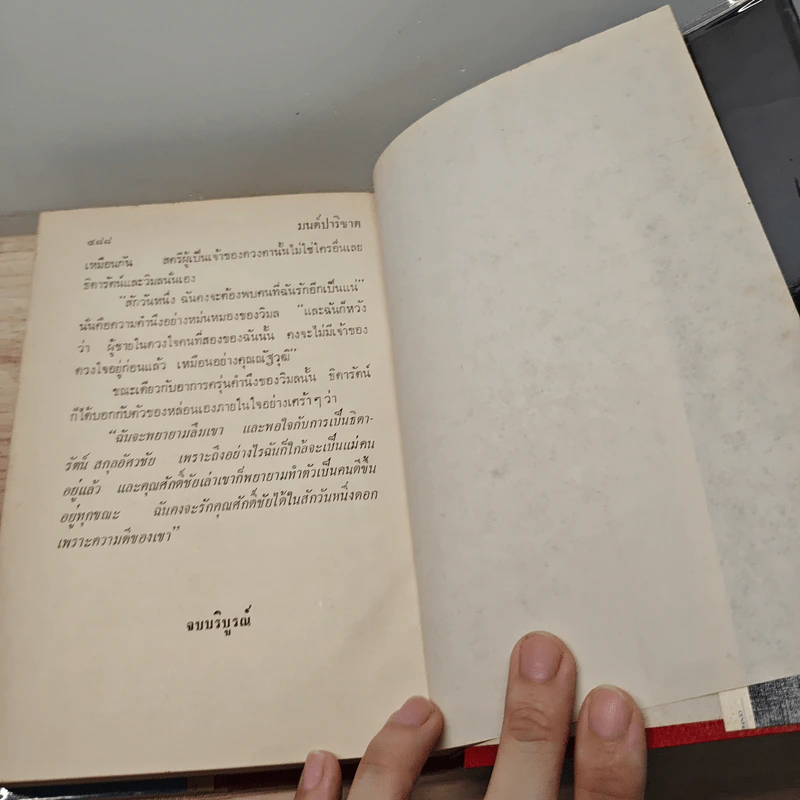 ๔๘๘ มนต์ปาริชาต
เหมือนกัน สตรีผู้เป็นเจ้าของดวงตานั้นไม่ใช่ใครอื่นเลย
ธิดารัตน์และวิมลนั่นเอง
“สักวันหนึ่ง ฉันคงจะต้องพบคนที่ฉันรักอีกเป็นแน่”
นั่นคือความคำนึงอย่างหม่นหมองของวิมล “และฉันก็หวัง
ว่า ผู้ชายในดวงใจคนที่สองของฉันนั้น คงจะไม่มีเจ้าของ
ดวงใจอยู่ก่อนแล้ว เหมือนอย่างคุณณัฐวุฒิ”
ขณะเดียวกับอาการครุ่นคำนึงของวิมลนั้น ธิดารัตน์
ก็ได้บอกกับตัวของหล่อนเองภายในใจอย่างเศร้าๆ ว่า
“ฉันจะพยายามลืมเขา และพอใจกับการเป็นธิดา-
รัตน์ สกุลอัศวชัย เพราะถึงอย่างไรฉันก็ใกล้จะเป็นแม่คน
อยู่แล้ว และคุณศักดิ์ชัยเล่าเขาก็พยายามทำตัวเป็นคนดีขึ้น
อยู่ทุกขณะ ฉันคงจะรักคุณศักดิ์ชัยได้ในสักวันหนึ่งดอก
เพราะความดีของเขา”
จบบริบูรณ์